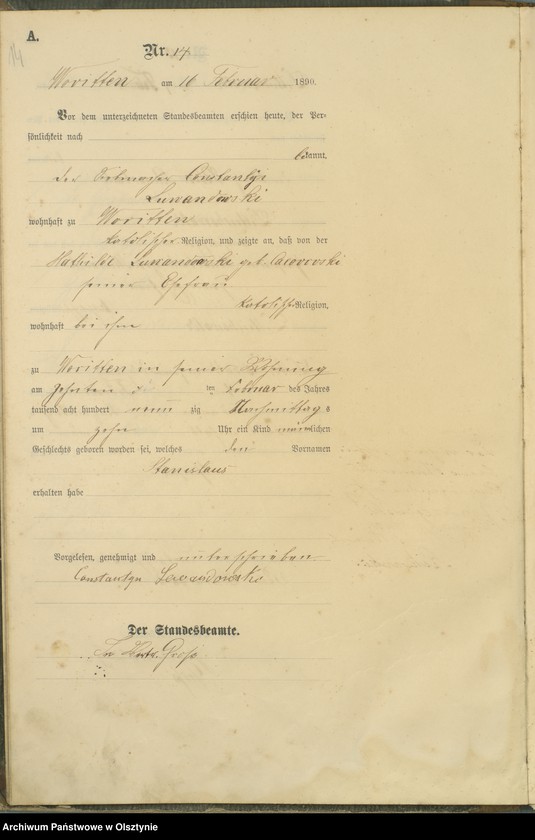 A.
14
Nr. 14
Woritten am 16 Februar 1890.
Vor dem unterzeichneten Standesbeamten erschien heute, der Per-
sönlichkeit nach
kannt,
der Constantyn
wohnhaft zu Woritten
katolischer Religion, und zeigte an, daß von der
geb.
seiner Ehefrau
katolischer Religion,
wohnhaft bei ihm
zu Woritten in seiner Wohnung
am zehnten ten Februar des Jahres
tausend acht hundert neun zig Nachmittags
um zehn Uhr ein Kind männlichen
Geschlechts geboren worden sei, welches den Vornamen
Stanislaus
erhalten habe
Vorgelesen, genehmigt und unterschrieben
Constantyn Lewandowski
Der Standesbeamte.
Archiwum Państwowe w Olsztynie